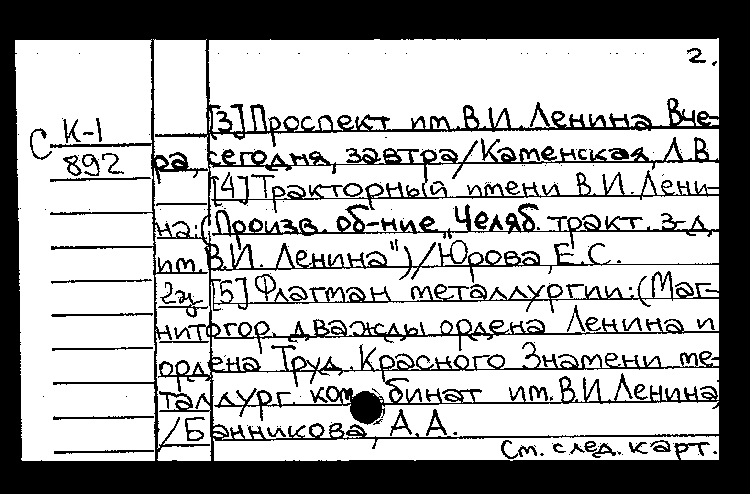 2.
[3] Проспект им. В.И. Ленина Вче-
С К-1
892
ра, сегодня, завтра / Каменская, Л.В.
[4] Тракторный имени В.И. Лени-
на: (Произв. об-ние „Челяб. тракт. з-д
им. В.И. Ленина") / Юрова, Е.С.
2э [5] Флагман металлургии: (Маг-
нитогор. дважды ордена Ленина и
ордена Труд. Красного Знамени ме-
таллург. комбинат им. В.И. Ленина)
/ Банникова, А.А.
См. след. карт.